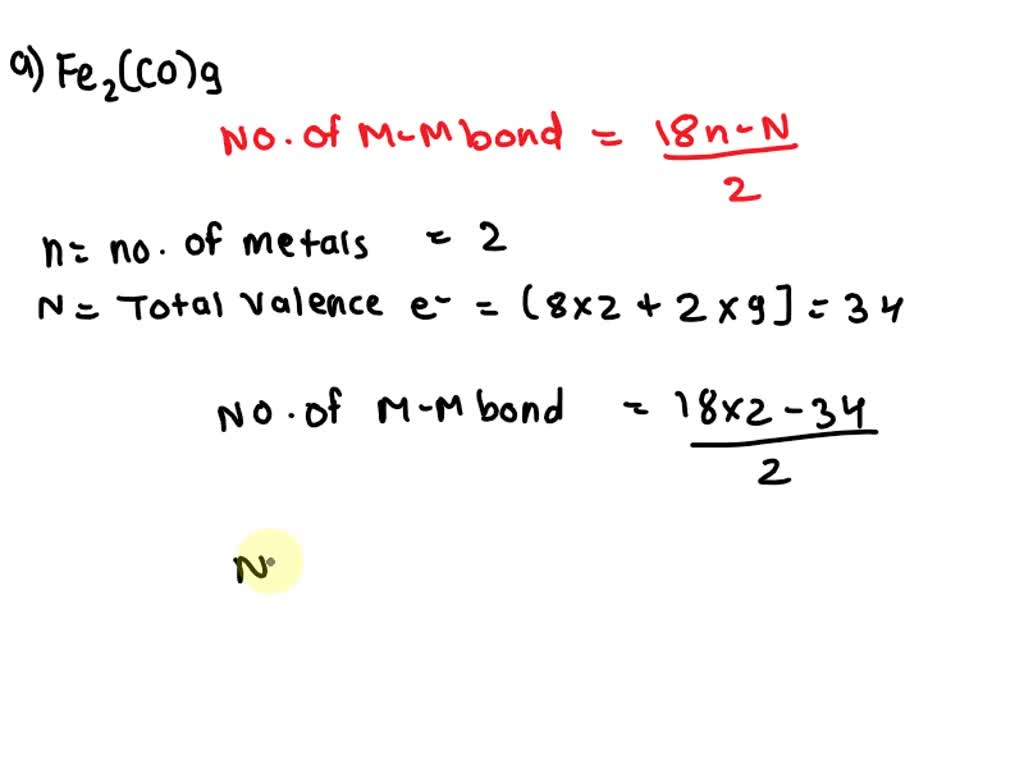 a) Fe₂(CO)9
No. of M-M bond = 18n-N
2
n = no. of metals = 2
N = Total valence e⁻ = (8×2 + 2×9] = 34
No. of M-M bond = 18×2 - 34
2
N.